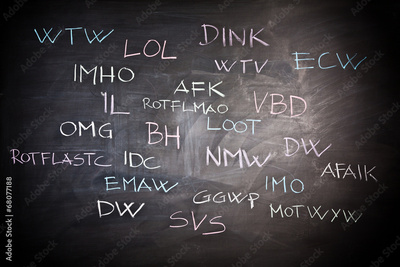 WTW LOL DINK
IMHO WTV ECW
AFK
IL ROTFLMAO VBD
OMG BH LOOT
ROTFLASTC IDC NMW DW AFAIK
EMAW IMO
DW GGWP MOTWYW
SVS
Adobe Stock | #68077188
Adobe Stock